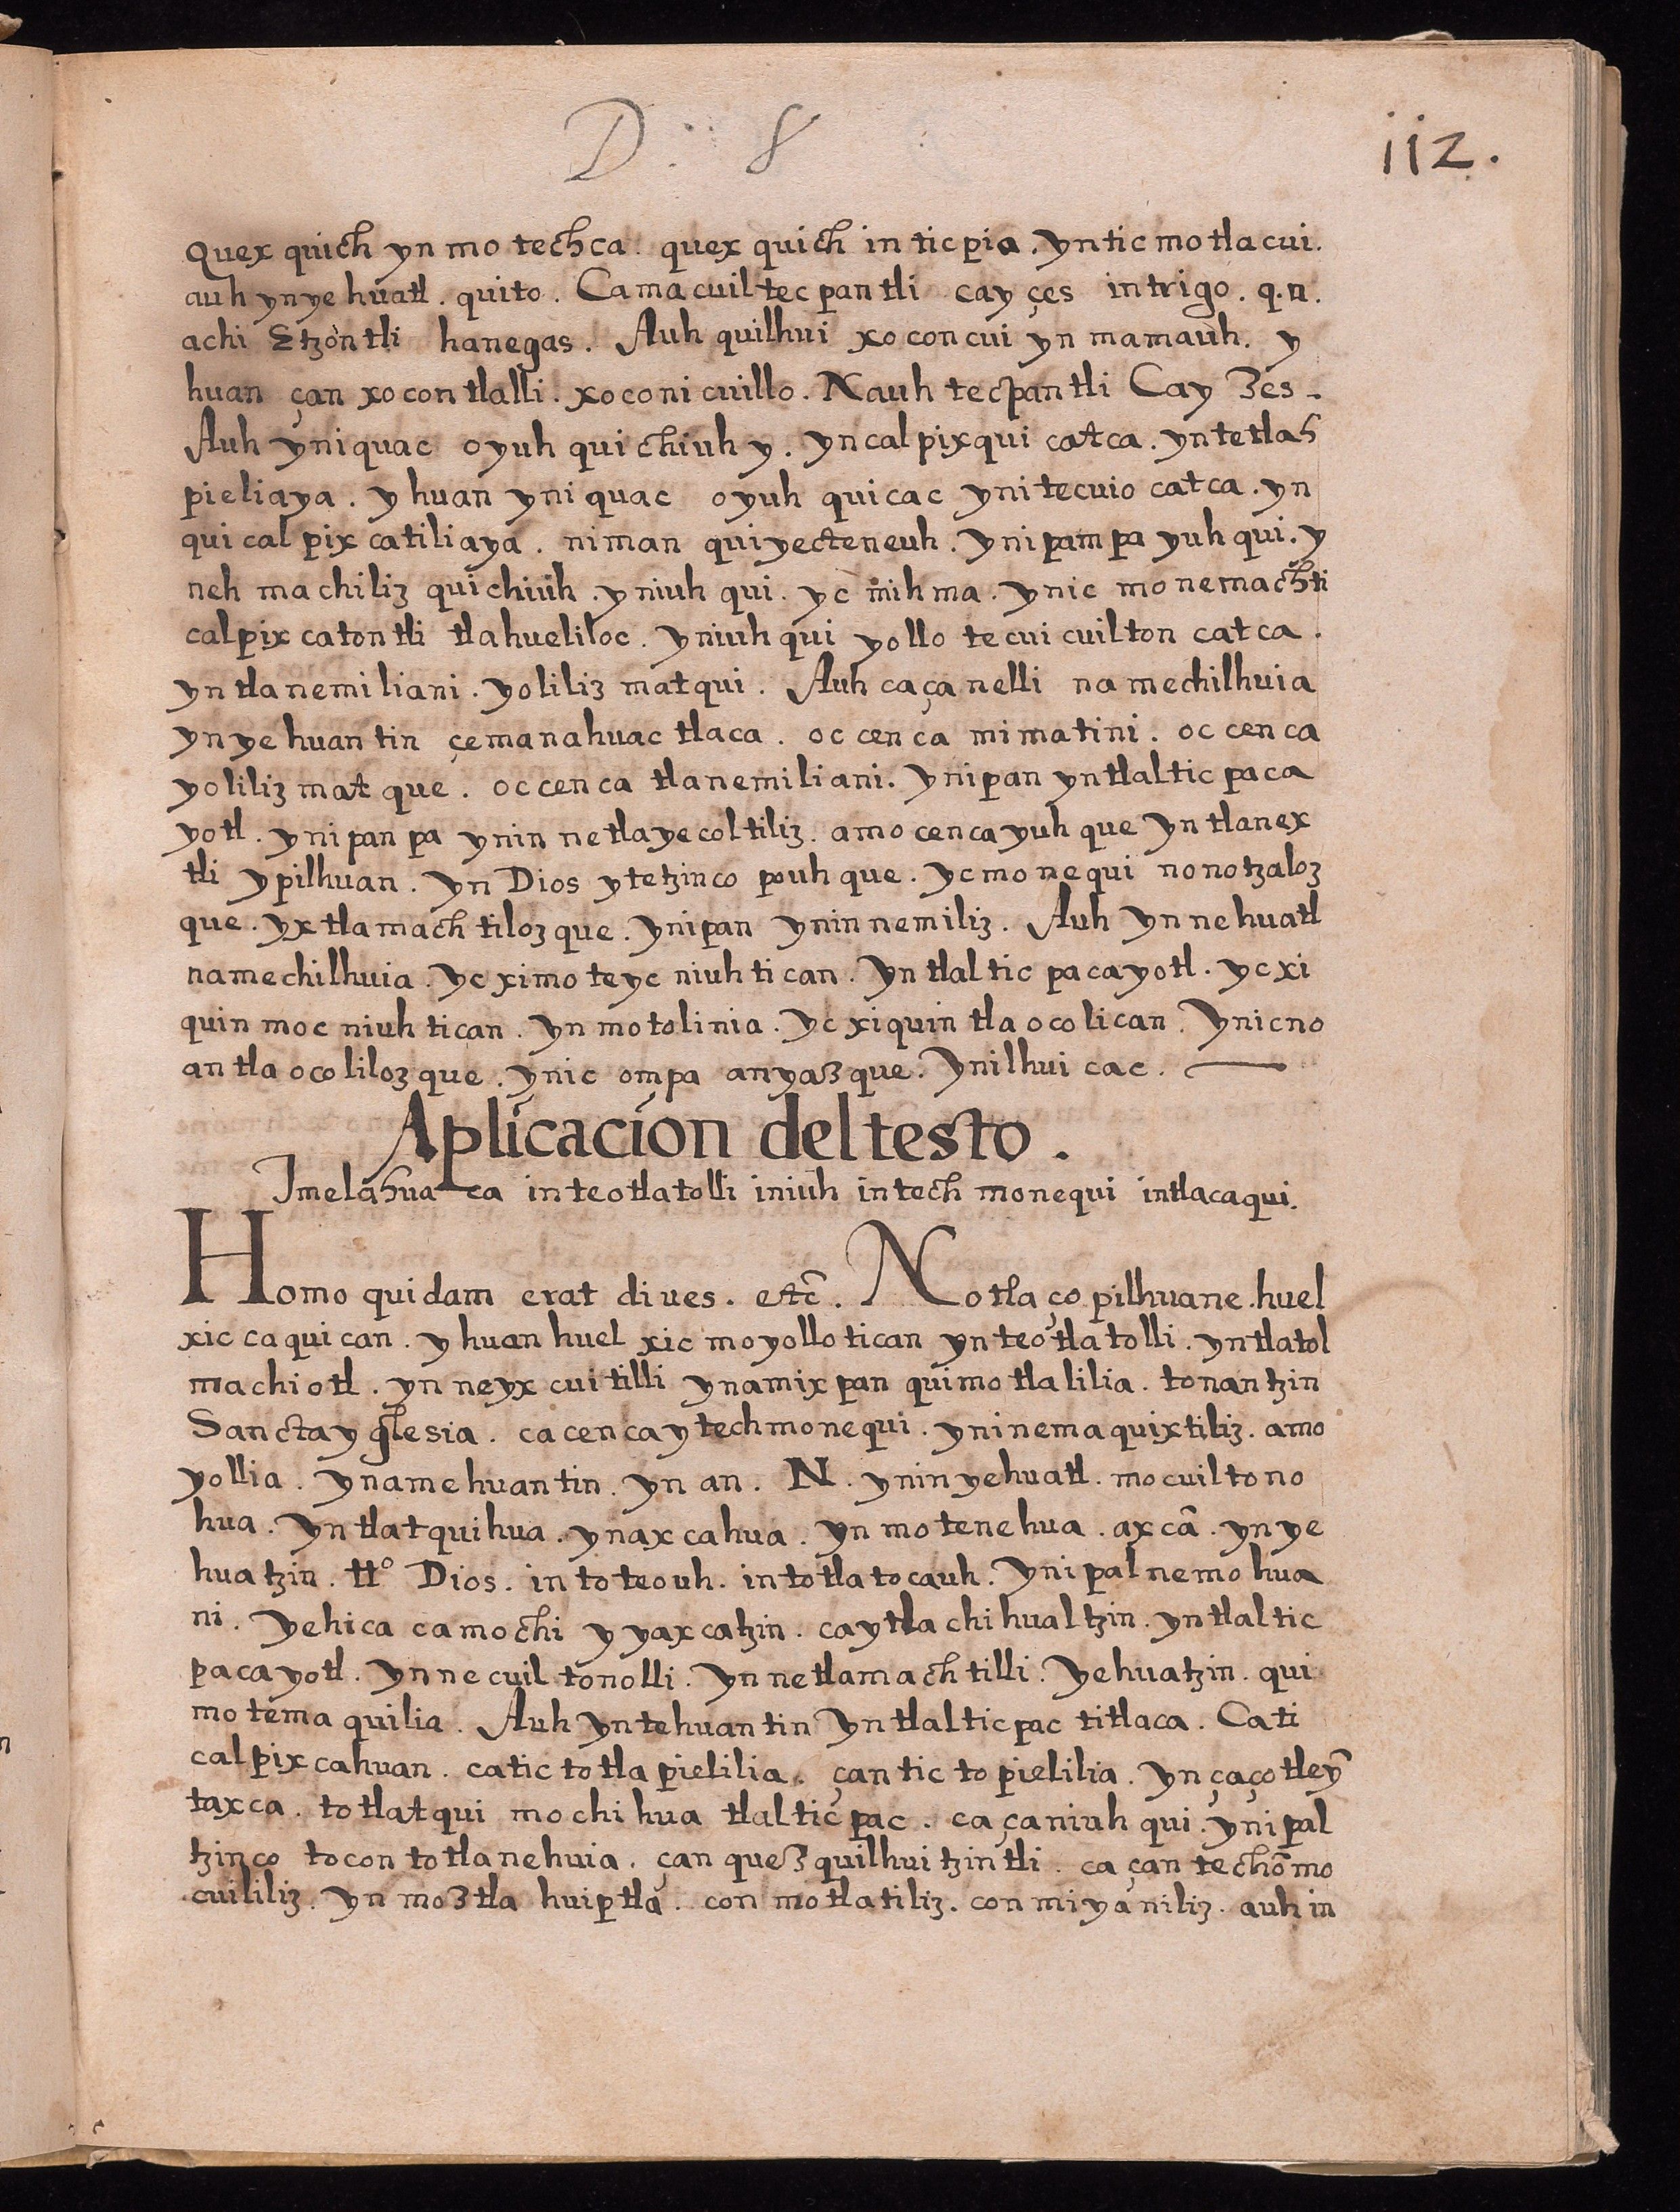 D. 8
112.
Quex quich yn mo techca. quex quich in tic pia. yn tic mo tlacui.
auh yn ye huatl. quito. Ca ma cuil tec pan tli cay çes in trigo. q.n.
achi Etzontli hanegas. Auh quilhui xo con cui yn mamauh. y
huan çan xo con tlalli. xo co ni cuillo. Nauh tecpan tli Cay Zes.
Auh yni quac o yuh qui chiuh y. yn cal pixqui catca. yn te tlah
pieliaya. y huan yni quac o yuh qui cac yni tecuio catca. yn
qui cal pix catiliaya. niman qui yecteneuh. yni pam pa yuh qui. y
neh ma chiliz qui chiuh. yniuh qui. yc mih ma. ynic mo nemachti
calpix caton tli tlahueliloc. yniuh qui yollo te cui cuilton catca.
yn tla nemiliani. yoliliz mat qui. Auh ca ça nelli na mechilhuia
yn ye huan tin çemanahuac tlaca. oc cen ca mi matini. oc cen ca
yoliliz mat que. oc cen ca tla nemiliani. yni pan yn tlaltic paca
yotl. yni pan pa ynin ne tlaye coltiliz. amo cenca yuh que yn tlanex
tli ypilhuan. yn Dios ytetzinco pouh que. yc mo ne qui no notzaloz
que. yx tlamach tiloz que. yni pan ynin nemiliz. Auh yn ne huatl
na mechilhuia. yc ximo teyc niuh ti can. yn tlal tic pa ca yotl. yc xi
quin moc niuh tican. yn mo tolinia. yc xi quin tla oco li can. ynic no
an tla oco liloz que. ynic ompa anyaz que. ynilhui cac.
Aplicacion del testo.
Imelahua ca in teotlatolli iniuh in tech monequi intlacaqui.
Homo quidam erat diues. etc̃. No tla ço pilhuane. huel
xic ca qui can. y huan huel xic mo yollo tican yn teo tla tolli. yn tlatol
machi otl. yn neyx cui tilli yn amix pan qui mo tlalilia. to nan tzin
Sancta yglesia. ca cen ca y tech mo ne qui. yni nema quixtiliz. amo
yollia. yn ame huan tin. yn an. N. ynin yehuatl. mo cuil to no
hua. yn tlat qui hua. yn ax ca hua. yn mo tene hua. ax cã. yn ye
hua tzin. tt̊o Dios. in to teouh. in to tla tocauh. yni pal ne mo hua
ni. yehica ca mochi y yax ca tzin. ca y tla chi hual tzin. yn tlal tic
pa ca yotl. yn ne cuil tonolli. yn ne tlamach tilli. yehuatzin. qui
mo tema quilia. Auh yn te huan tin yn tlal tic pac titlaca. Ca ti
cal pix ca huan. ca tic to tla pielilia. çan tic to pielilia. yn ça ço tleỹ
tax ca. to tlat qui mo chi hua tlal tic pac. ca ça niuh qui. yni pal
tzin co to con to tla ne huia. çan quez quilhui tzin tli. ca çan techõ mo
cuililiz. yn moz tla huip tla. con mo tla tiliz. con mi ya niliz. auh in